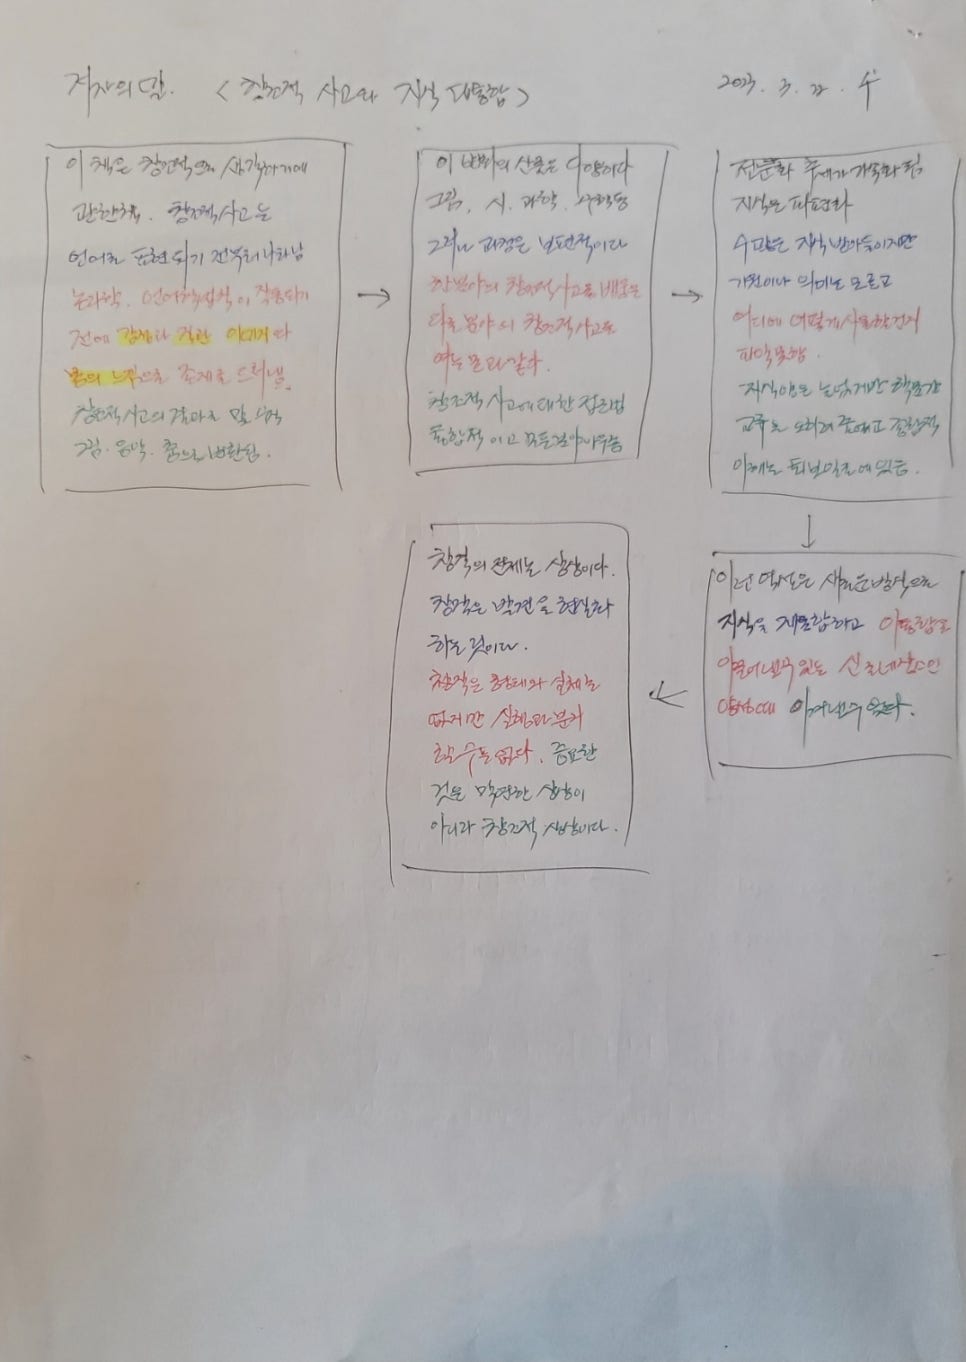 저자의 말. <창조적 사고와 지식 대통합> 2023. 3. 22. 수
이 책은 창조적으로 생각하기에
관한 책. 창조적 사고는
언어로 표현되기 전부터 나타남
논리학, 언어학 법칙이 작동하기
전에 감정과 직관 이미지와
몸의 느낌으로 존재를 드러냄.
창조적 사고의 결과로 말
그림. 음악. 춤으로 변환됨.
이 변환의 산물은 다양하다
그림, 시. 과학. 수학등
그러나 과정은 보편적이다
한 분야의 창조적 사고를 배움은
다른 분야의 창조적 사고를
여는 문과 같다.
창조적 사고에 대한 접근법
통합적이고
전문화 추세가 가속화 됨
지식은 파편화
수많은 지식 받아들이지만
기원이나 의미는 모르고
어디에 어떻게 사용할건지
파악못함.
지식양은 늘었지만 학문간
교류는 오히려 줄어들고 종합적
이해는 퇴보일로에 있음.
이런 역설은 새로운 방식으로
지식을 재통합하고 이 통합을
이끌어낼수 있는 신 르네상스인
양성해 이겨낼 수 있다.
창작의 전제는 상상이다.
창작은 발견을 현실화
하는 것이다.
창작은 형태와 실체는
없지만 실행과 분리
될 수는 없다. 중요한
것은 막연한 상상이
아니라 창조적 상상이다.